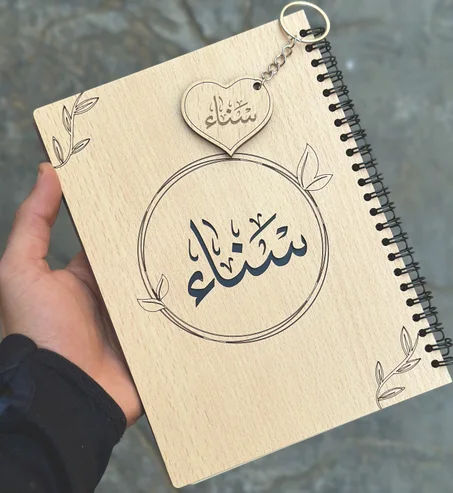 سناء
سَناء